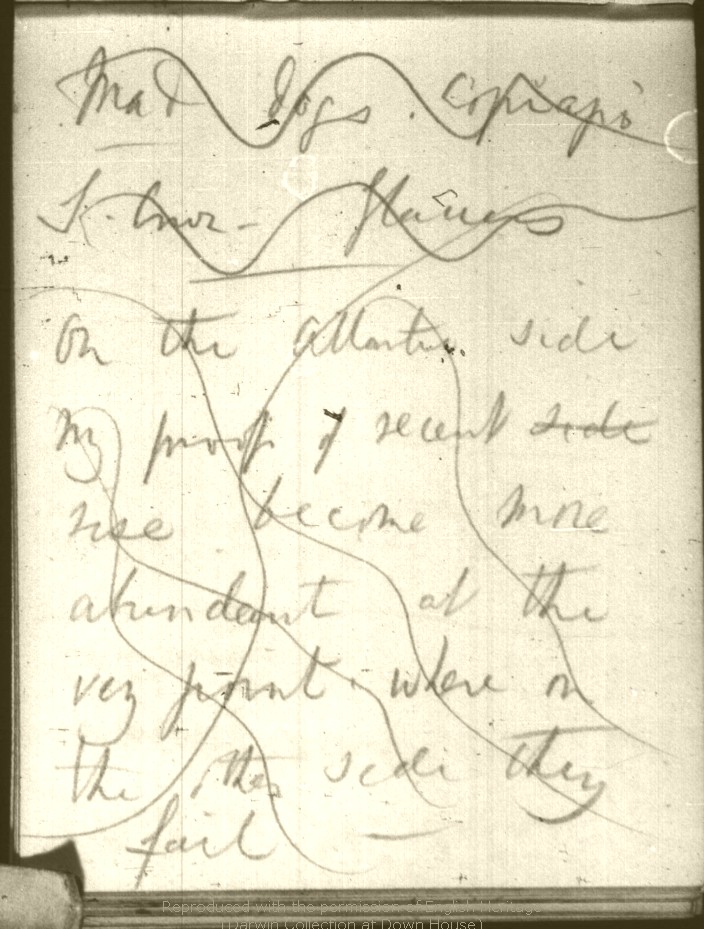 Mad dogs. Copiapò
On the Atlantic side
my proofs of recent side
rise become more
abundant at the
very point where on
the other side they
fail
Reproduced with the permission of English Heritage
(Darwin Collection at Down House)